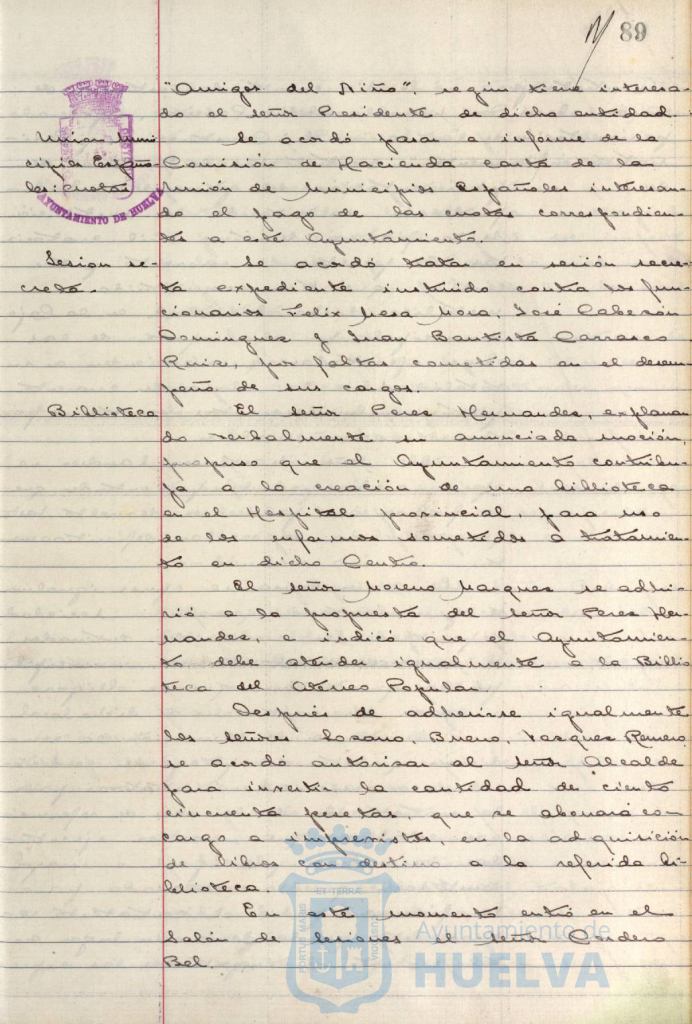 89
"Amigos del Niño", según tiene interesa-
do el señor Presidente de dicha entidad.
Union Muni-
cipios Españo-
les: cuotas
Se acordó pasar a informe de la
Comisión de Hacienda carta de la
Unión de Municipios Españoles interesan-
do el pago de las cuotas correspondien-
tes a este Ayuntamiento.
AYUNTAMIENTO DE HUELVA
Sesion se-
creta.
Se acordó tratar en sesión secre-
ta expediente instruido contra los fun-
cionarios Felix Mesa Mora, José Cabezón
Dominguez y Juan Bautista Carrasco
Ruiz, por faltas cometidas en el desem-
peño de sus cargos.
Biblioteca
El señor Perez Hernandez, explanan-
do verbalmente su anunciada moción,
propuso que el Ayuntamiento contribu-
ya a la creación de una biblioteca
en el Hospital provincial, para uso
de los enfermos sometidos a tratamien-
to en dicho Centro.
El señor Moreno Marquez se adhi-
rió a la propuesta del señor Perez Her-
nandez, e indicó que el Ayuntamien-
to debe atender igualmente a la Biblio
teca del Ateneo Popular.
Después de adherirse igualmente
los señores Lozano, Bueno, Vazquez Romero,
se acordó autorizar al señor Alcalde
para invertir la cantidad de ciento
cincuenta pesetas, que se abonará co-
cargo a imprevistos, en la adquisición
de libros con destino a la referida bi-
blioteca.
En este momento entró en el
Salón de sesiones el señor Cordero
Bel.
PORTUS MARIS ET TERRÆ CUSTODIA
Ayuntamiento de
HUELVA